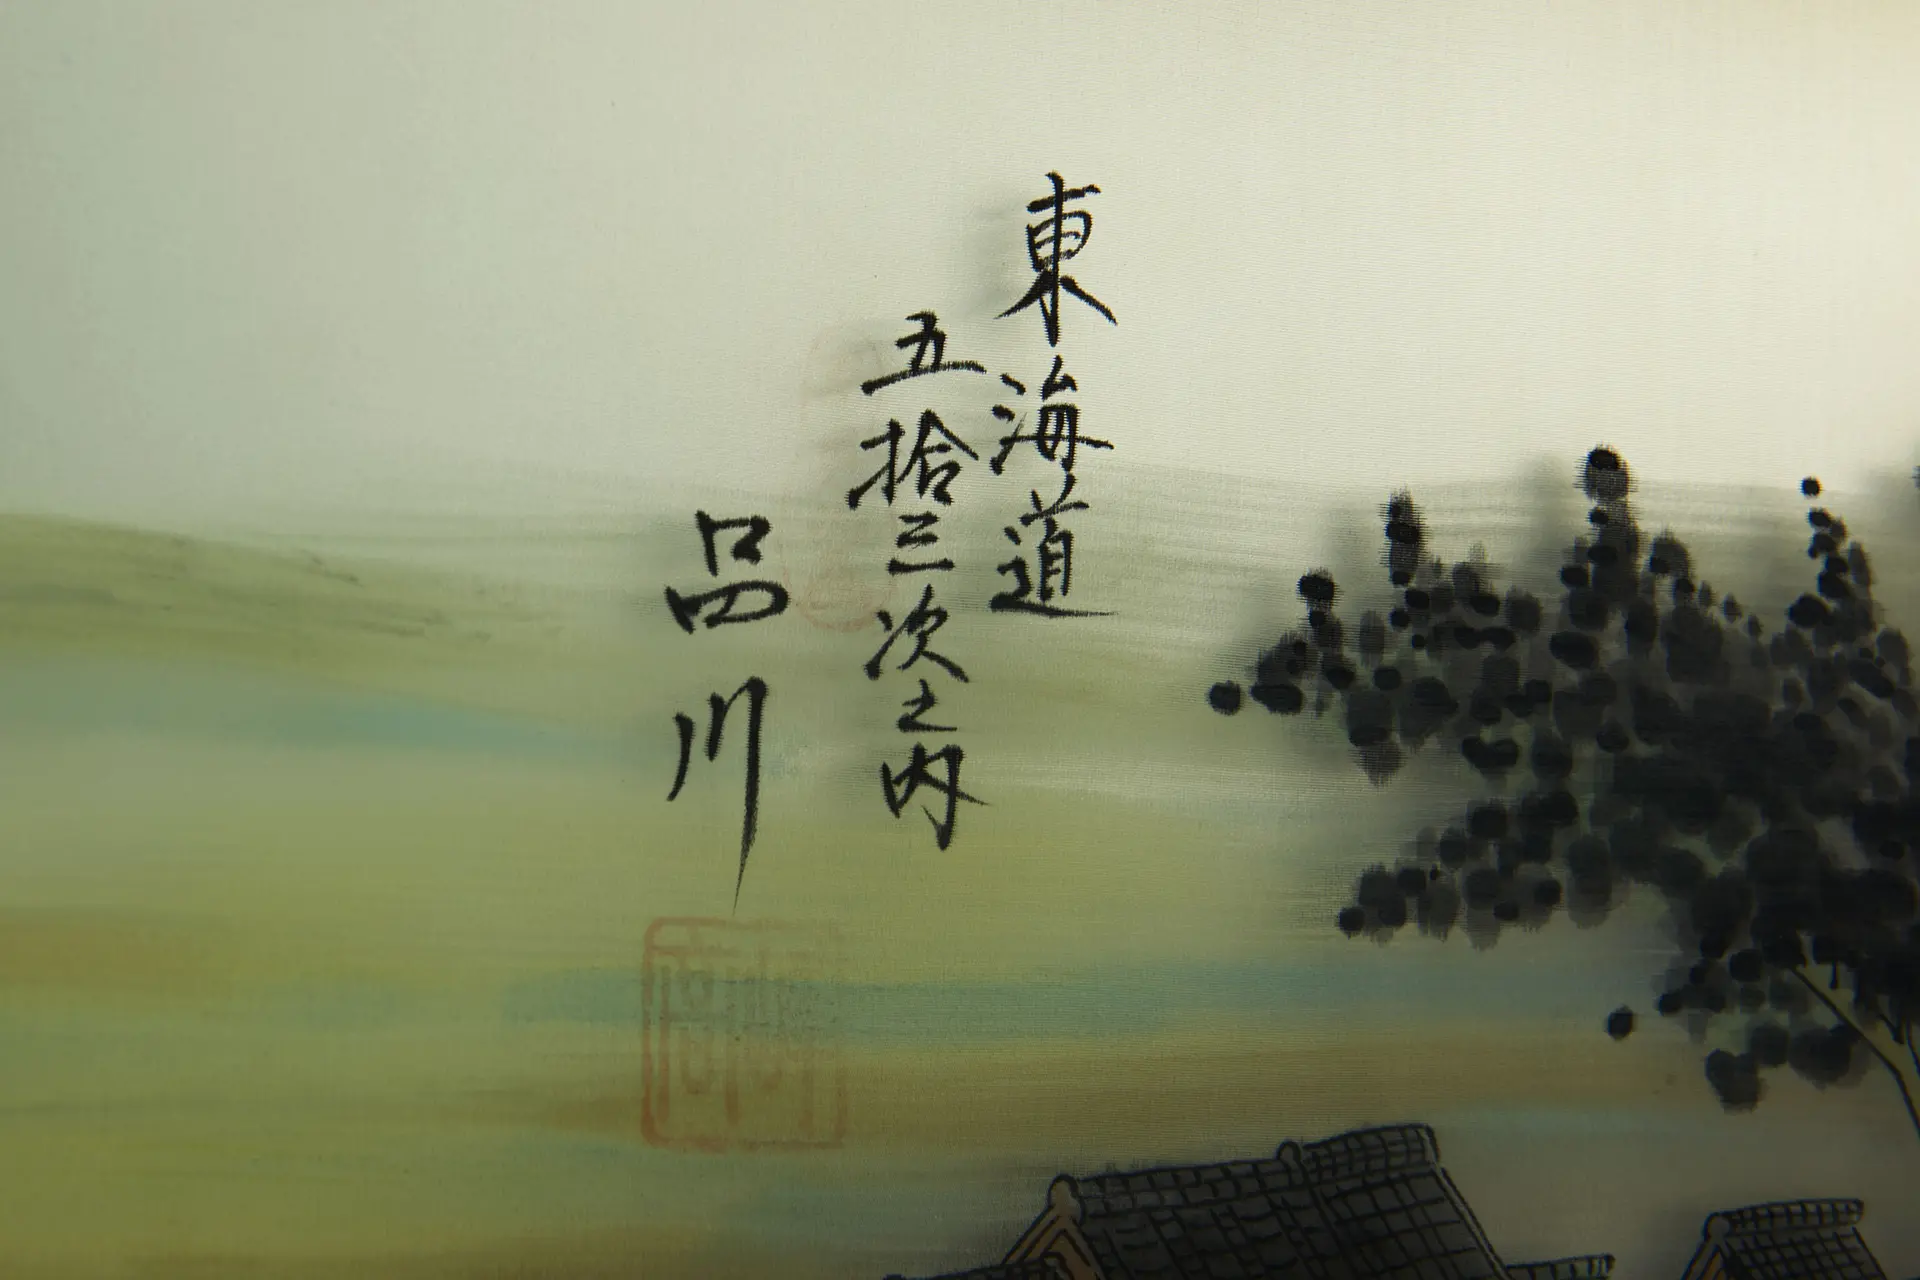 東海道
五拾三次之内
品川